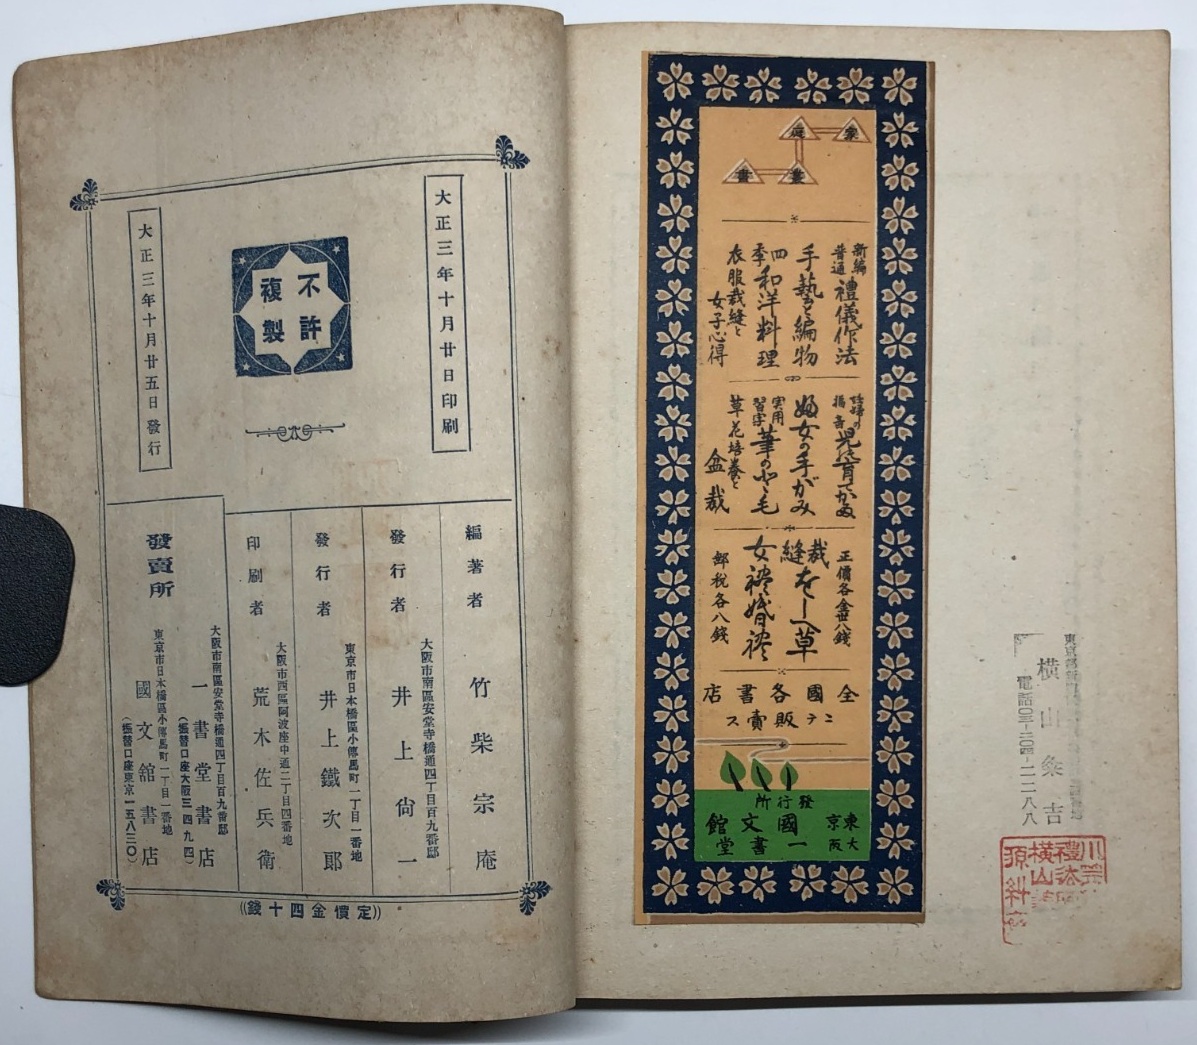 大正三年十月廿日印刷
大正三年十月廿五日發行
不許
複製
編著者 竹柴宗庵
大阪市南區安堂寺橋通四丁目百九番邸
發行者 井上尙一
東京市日本橋區小傳馬町一丁目一番地
發行者 井上鐵次郎
大阪市西區阿波座中通二丁目四番地
印刷者 荒木佐兵衛
發賣所
大阪市南區安堂寺橋通四丁目百九番邸
一書堂書店
(振替口座大阪三四九四)
東京市日本橋區小傳馬町一丁目一番地
國文館書店
(振替口座東京一五八三〇)
((定價金四十錢))
家庭
叢書
新編普通禮儀作法
手藝と編物
四季和洋料理
衣服裁縫と
女子心得
婦女の手がみ
実用習字筆の
草花培養と
盆裁
正價各金卅八錢
裁縫をしへ草
女禮婚禮
郵税各八錢
全國各書店
ニテ販賣ス
發行所
東京 國文館
大阪 一書堂
横山粂吉
電話〇三-二〇四-二一八八